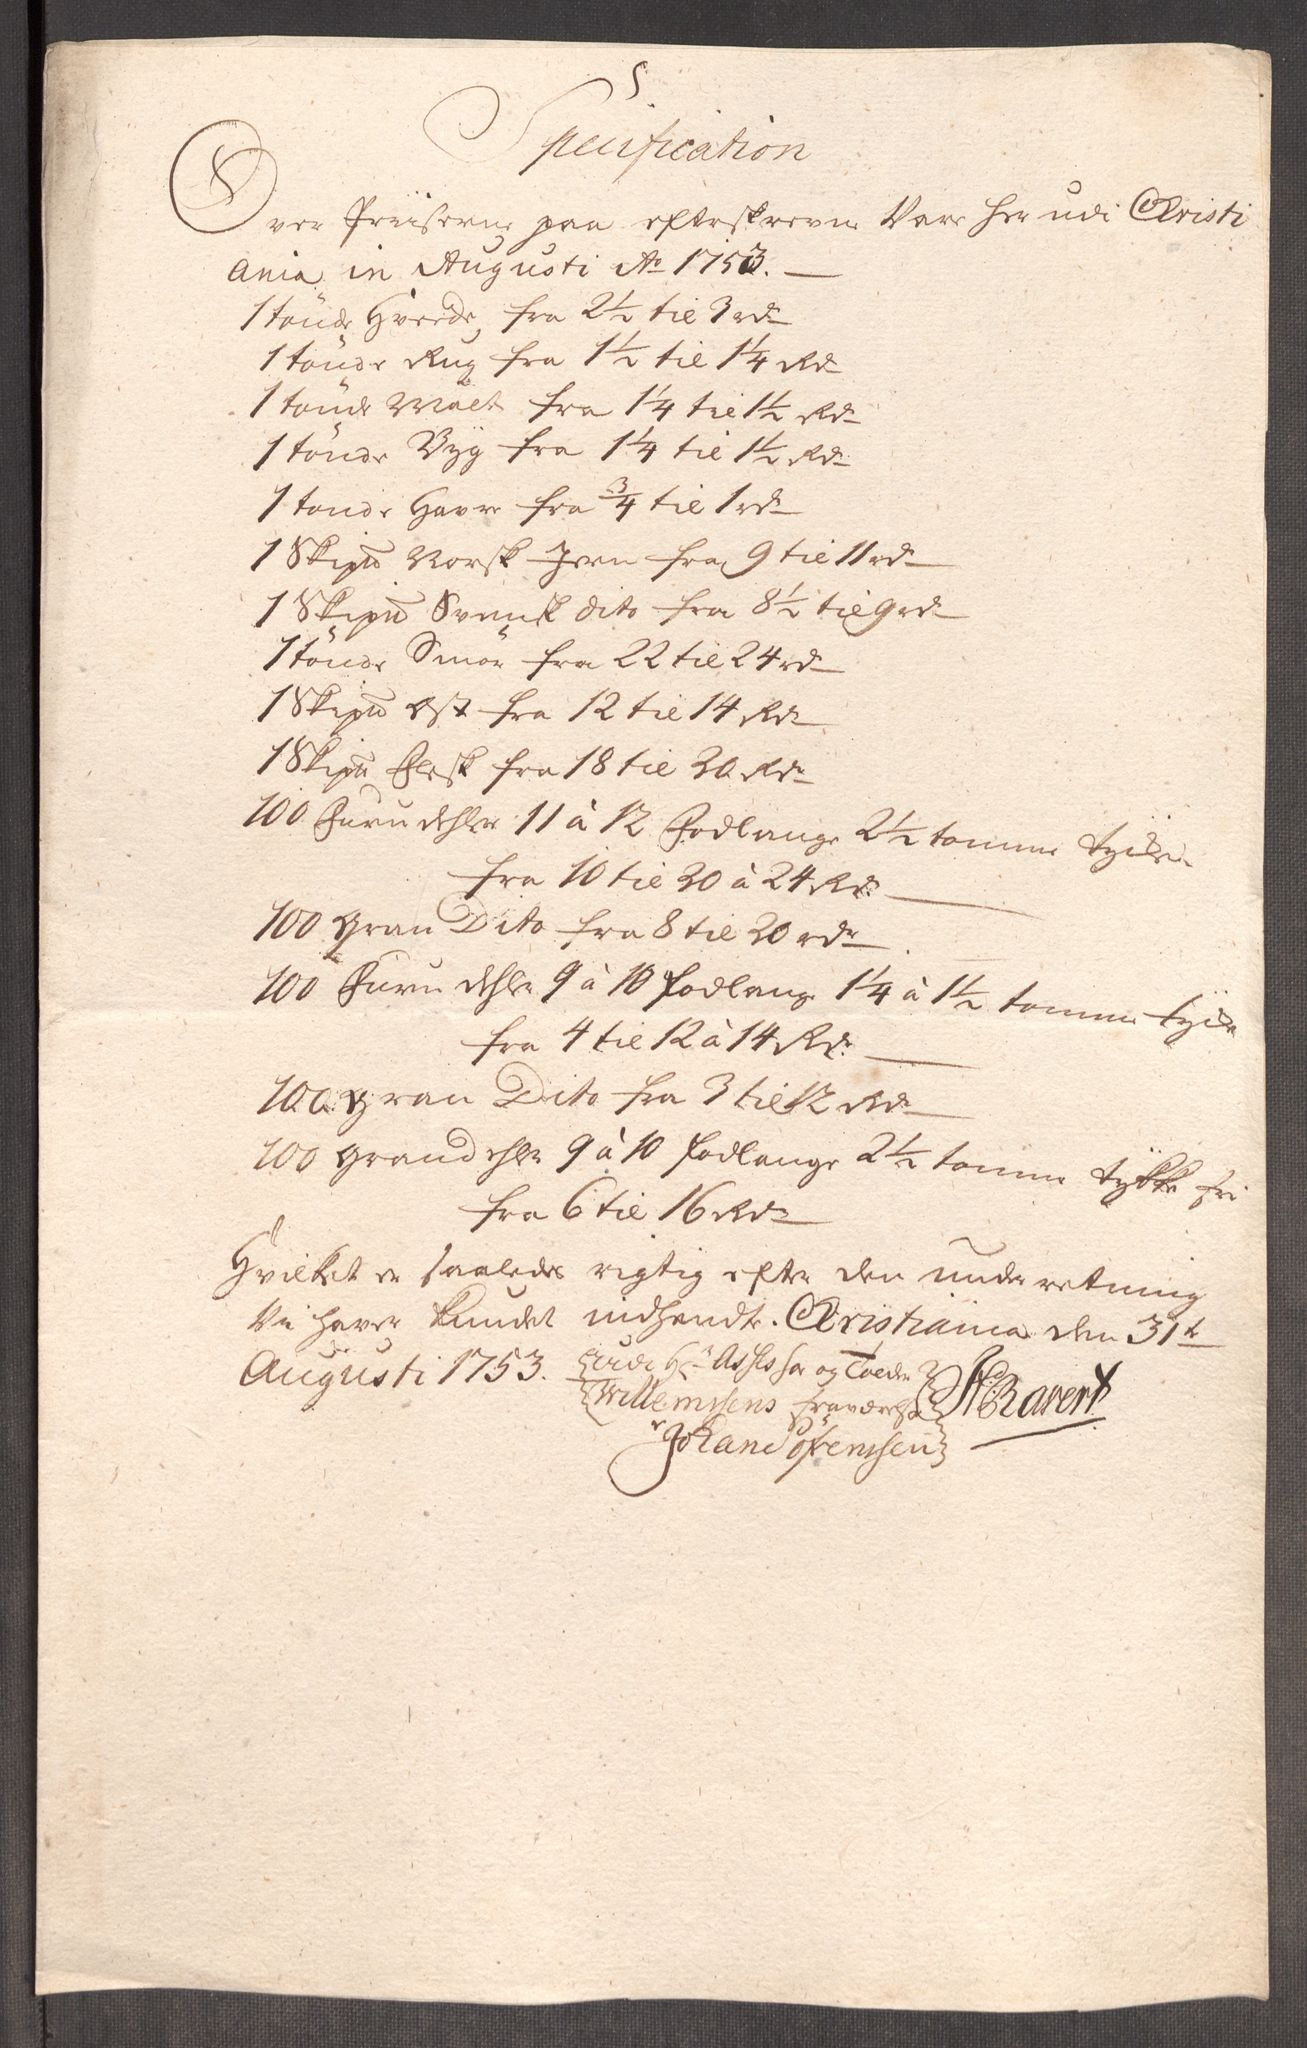 Specification
Over Priiserne paa efterskrevne Vare her udi Christi
ania in Augusti Ao 1753.
1 tönde Hvede fra 2½ til 3 rd
1 tönde Rug fra 1½ til 1¼ Rd
1 tönde Malt fra 1¼ til 1½ Rd
1 tönde Byg fra 1¼ til 1½ Rd
1 tonde Havre fra ¾ til 1 rd
1 Skipd Norsk Jern fra 9 til 11 rd
1 Skipd Svensk dito fra 8½ til 9 rd
1 tönde Smör fra 22 til 24 rd
1 Skipd Ost fra 12 til 14 Rd
1 Skipd Flesk fra 18 til 20 Rd
100 Furu dehler 11 à 12 Fodlange 2½ tomme tycke
fra 10 til 20 à 24 Rd
100 Gran Dito fra 8 til 20 rdr
100 Furu dehler 9 à 10 fodlange 1¼ à 1½ tomme tycke
fra 4 til 12 à 14 Rd
100 Gran Dito fra 3 til 12 Rd
100 Grandehler 9 à 10 fodlange 2½ tomme tykke fri
fra 6 til 16 Rd
Hvilket er saaledes rigtig efter den underretning
Vi haver kundet indhendte. Christiania den 31te
Augusti 1753. udi Hr og Tolder
Willemssens fraværelse HRavert
Johan Sörenssen